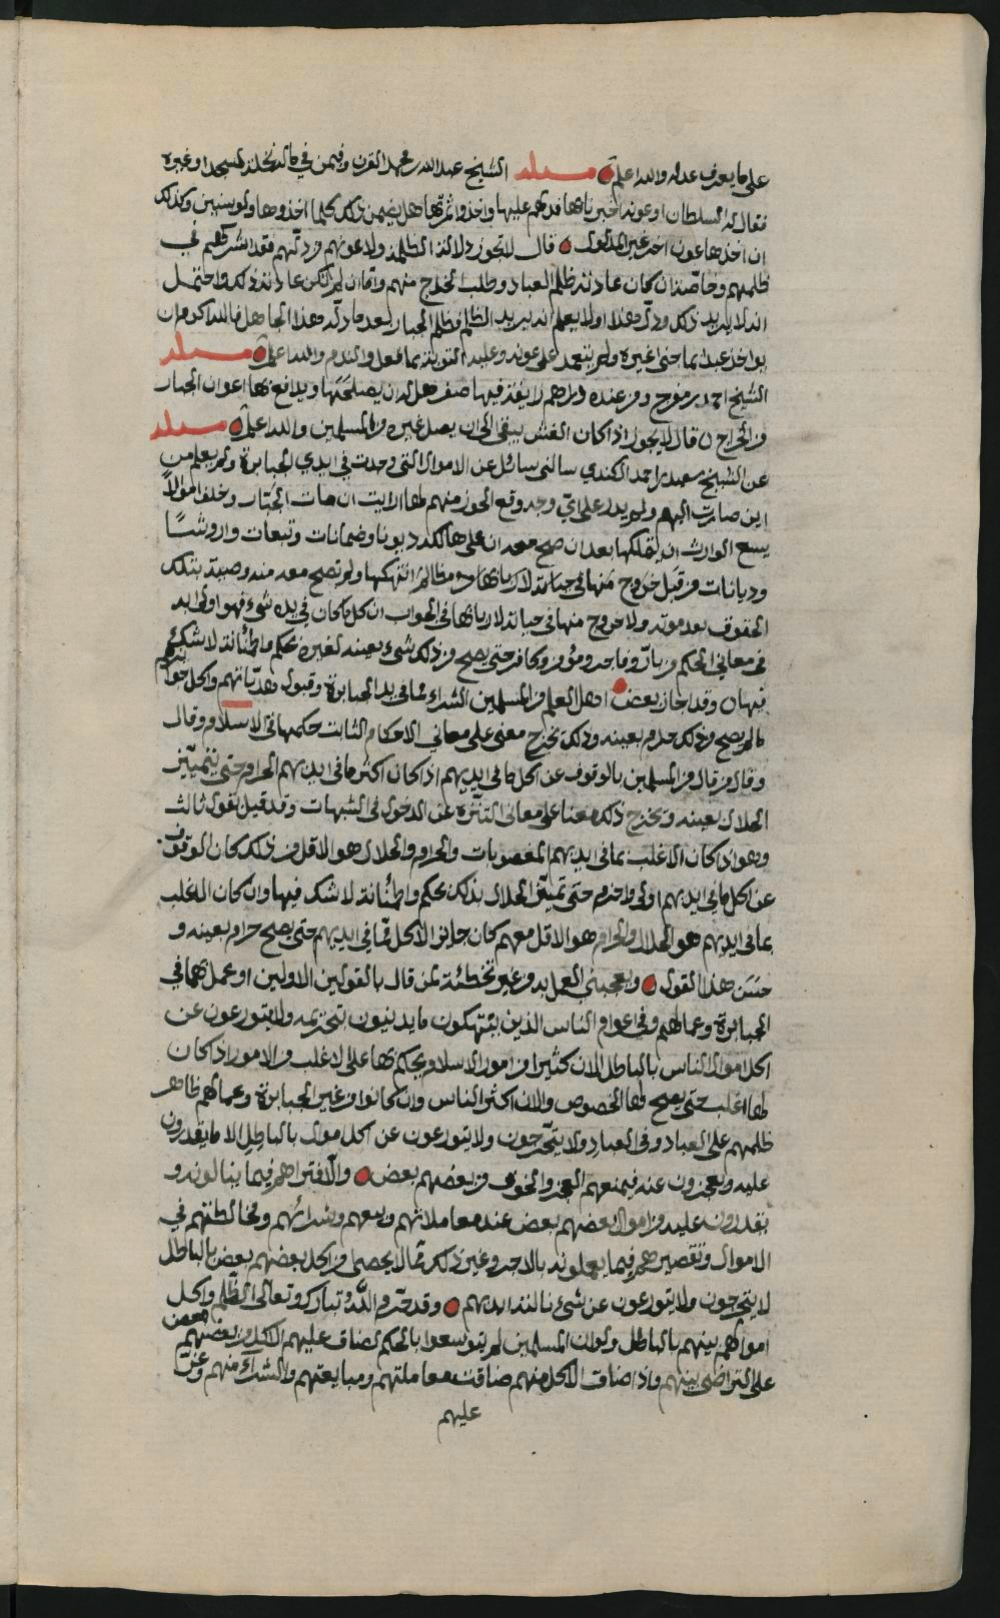 على ما يعرف عدله والله اعلم مسئلة الشيخ عبدالله بن محمد القرن وفيمن في ماله نخلة لمسجد او غيره
فقال له السلطان او عونه اخبرنا بها فدلهم عليها واخذوا ثمرتها هل يضمن ذلك كلما اخذوها ولو سنين وكذلك
ان اخذها عون اخر غير المدلول قال لا تجوز دلالة الظلمة ولا عونهم ومن دلهم فقد اشركهم في
ظلمهم وخاصة ان كان عادته ظلم العباد وطلب الخراج منهم واما ان لم تكن عادته ذلك واحتمل
انه لا يريد ذلك ودل هذا او لا يعلم انه يريد الظلم فظلم الجبار بعد ما دله هذا الجاهل فالله اكرم ان
يواخذ عبدا بما جنى غيره ولم يتعمد على عونه وعليه التوبة مما فعل والندم والله اعلم مسئلة
الشيخ احمد بن مفرج ومن عنده دراهم زايفة فيها صفر هل له ان يصلحها ويدافع بها اعوان الجبار
من الخراج قال لا يجوز اذا كان الغش يبقى الى ان يصل غيره من المسلمين والله اعلم مسئلة
عن الشيخ سعيد بن احمد الكندي سالني سائل عن الاموال التي وجدت في ايدي الجبابرة ولم يعلم من
اين صارت اليهم ولم يدر على اي وجه وقع الحوز منهم لها ارايت ان مات الجبار وخلف اموالا
يسع الوارث ان يتملكها بعد ان صح معه ان على هالكه ديونا وضمانات وتبعات واروشا
وديانات من قبل خروج منها في حياته لاربابها ومظالم انتهكها ولم تصح معه منه وصية بتلك
الحقوق بعد موته ولا خروج منها في حياته لاربابها في الجواب ان كل ما كان في يده شيء فهو اولى به
في معاني الحكم من بار وفاجر ومؤمن وكافر حتى يصح من ذلك شيء بعينه لغيره بحكم واطمئانة لا شك
فيها وقد اجاز بعض اهل العلم من المسلمين الشراء مما في يد الجبابرة وقبول هديّاتهم واكل جوائزهم
ما لم يصح من ذلك حرام بعينه وذلك يخرج معنى على معاني الاحكام الثابت حكمها في الاسلام وقال
وقال من قال من المسلمين بالوقوف عن اكل ما في ايديهم اذا كان اكثر ما في ايديهم الحرام حتى يتميّز
الحلال بعينه ويخرج ذلك معنا على معاني التنزه عن الدخول في الشبهات وقد قيل بقول ثالث
وهو اذا كان الاغلب بما في ايديهم المغصوبات والحرام والحلال هو الاقل من ذلك كان الوقوف
عن اكل ما في ايديهم اولى واحزم حتى تميّز الحلال بذلك بحكم واطمئانة لا شك فيها وان كان الاغلب
بما في ايديهم هو الحلال والحرام هو الاقل معهم كان جايز الاكل مما في ايديهم حتى يصح حرام بعينه و
حسن هذا القول ويعجبني العمل به من غير تخطئة لمن قال بالقولين الاولين او عمل بهما في
الجبابرة وعمالهم وفي اعوام الناس الذين ينتهكون ما يدينون بتحريمه ولا يتورعون عن
اكل اموال الناس بالباطل لان كثيرا من امور الاسلام يحكم بها على الاغلب من الامور اذا كان
لها اغلب حتى يصح لها الخصوص والان اكثر الناس وان كانوا من غير الجبابرة وعمالهم ظاهر
ظلمهم على العباد وفي العباد ولا يتحرجون ولا يتورعون عن اكل مواله بالباطل الا ما يقدرون
عليه ويعجزون عنه فيمنعهم العجز والخوف من بعضهم بعض والا فتراهم فيما ينالونه و
يقدرون عليه من اموال بعضهم بعض عند معاملاتهم وبيعهم وشرائهم ومخالطتهم في
الاموال وتقصيرهم فيما يعملونه بالاجر وغير ذلك مما لا يحصى من اكل بعضهم بعض بالباطل
لا يتحرجون ولا يتورعون عن شيء نالته ايديهم وقد حرم الله تبارك وتعالى الظلم واكل
اموالهم بينهم بالباطل ولو ان المسلمين لم يتوسعوا بالحكم لضاق عليهم الاكل من بعضهم بعض
على التراضي بينهم واذا ضاق الاكل منهم ضاقت معاملتهم ومبايعتهم والشراء منهم وعزّ
عليهم